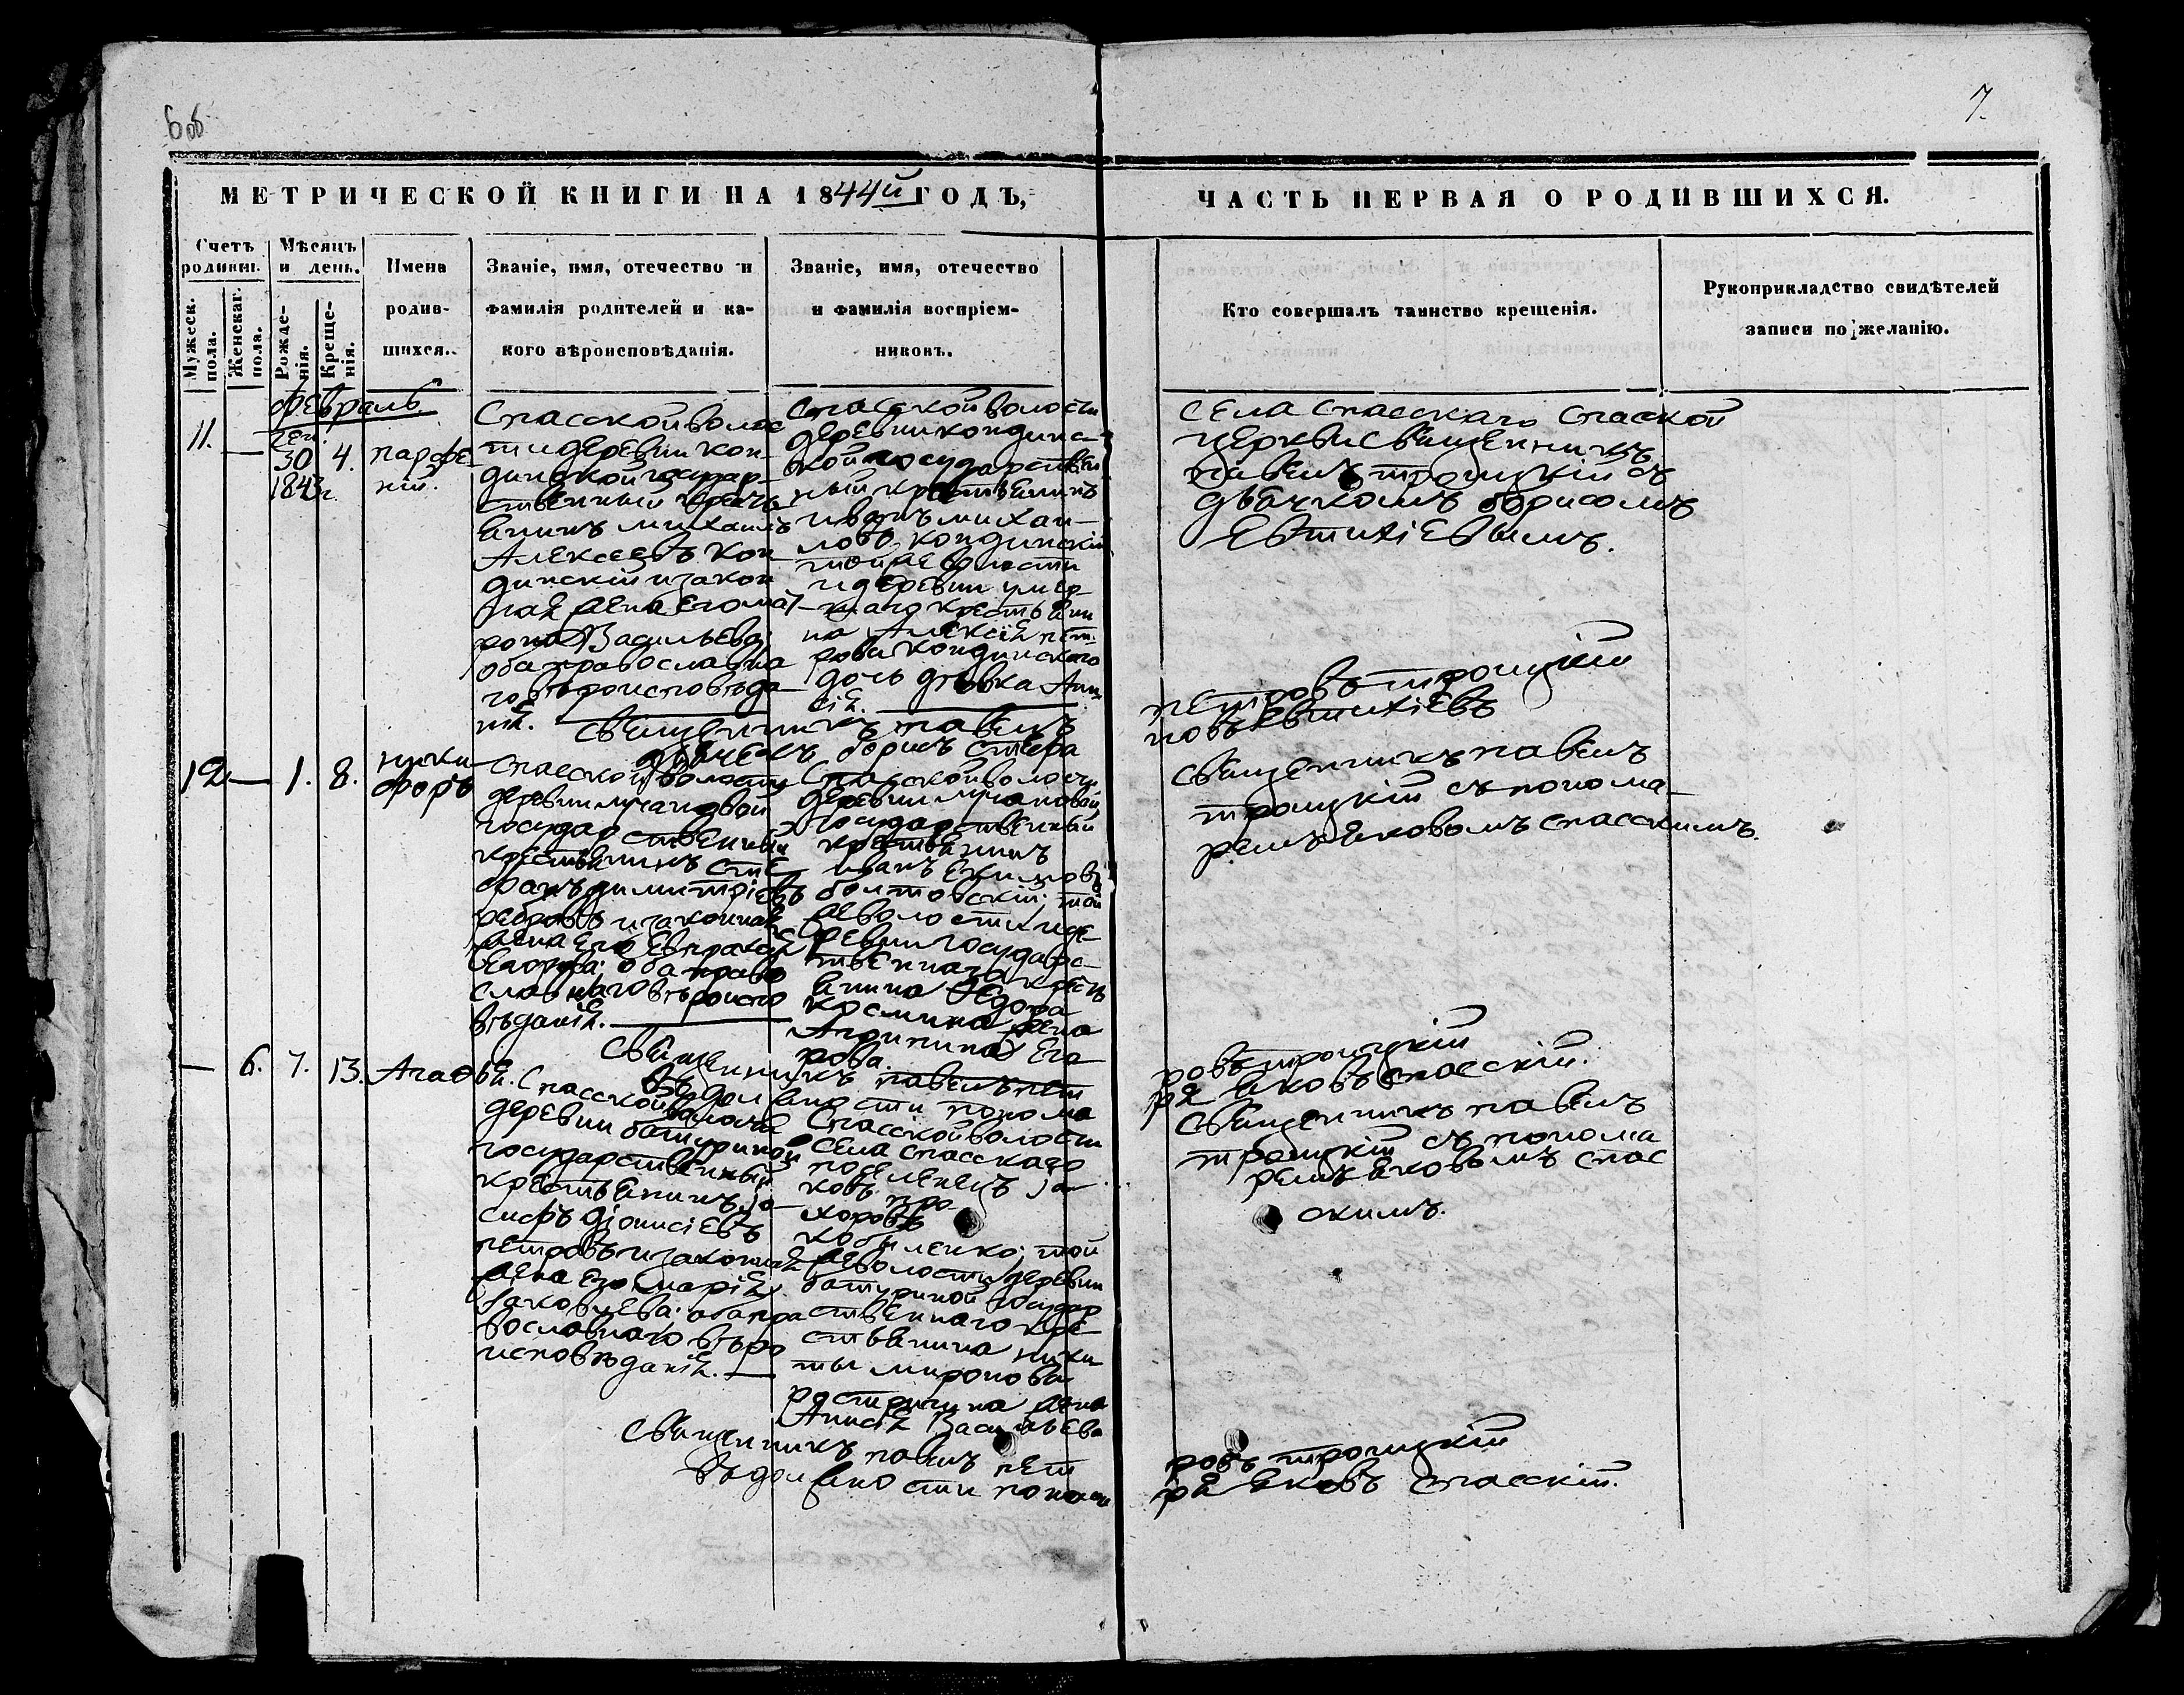 6 об
7.
МЕТРИЧЕСКОЙ КНИГИ НА 1844й ГОДЪ,
ЧАСТЬ ПЕРВАЯ О РОДИВШИХСЯ.
Счетъ родивш.
Мужеск. пола.
Женскаг. пола.
Мѣсяцъ и день.
Рожденія.
Крещенія.
Имена
родив-
шихся.
Званіе, имя, отечество и
фамилія родителей и ка-
кого вѣроисповѣданія.
Званіе, имя, отечество
и фамилія воспріем-
никовъ.
Кто совершалъ таинство крещенія.
Рукоприкладство свидѣтелей
записи по желанію.
февраль
11.
—
30
1843 г.
4.
парѳе-
ній.
Спасской волос
ти деревни кон-
динской государ-
ственный кресть
янинъ михаилъ
Алексеевъ кон-
динскій и закон
ная жена его мат
рона Васильева;
оба православна
го вѣроисповѣда-
нія.
Спасской волости
деревни кондинс-
кой государствен
ный крестьянинъ
иванъ михаи-
ловъ кондинскій
той же волости
и деревни умер-
шаго крестьяни
на Алексія пет-
рова кондинского
дочь девка Анис
сія.
села спасскаго спаской
церкви священникъ
павелъ троицкій съ
дьячкомъ борисомъ
Евтихіевымъ.
священникъ павелъ
петровъ троицкій
дьячекъ борисъ стефа
новъ Евтихіевъ
12.
—
1.
8.
ники
форъ
Спасской волости
деревни лучановой
государственный
крестьянинъ сте
фанъ димитріевъ
ребровъ и законная
жена его Евпраксія
Егорова; оба право
славнаго вѣроиспо
вѣданія.
Спасской волости
деревни лучановой
государственный
крестьянинъ
иванъ Екимовъ
болтовскій; той
же волости и де-
ревни государс-
твеннаго кресть
янина Ѳедора
космина жена
Акулина Его
рова.
священникъ павелъ
троицкій съ понома-
ремъ яковомъ спасскимъ.
священникъ павелъ пет
ровъ троицкій
въ должности понома
ря яковъ спасскій.
—
6.
7.
13.
Агаѳья.
Спасской волости
деревни батуриной
государственный
крестьянинъ Іо-
сифъ діонисіевъ
петровъ и законная
жена его марія
Іаковлева; оба пра
вославнаго вѣро
исповѣданія.
Спасской волости
села спасскаго
поселенецъ Іа
ковъ про-
хоровъ
кобыленко; той
же волости деревни
батуриной государ
ственнаго кре-
стьянина ники
ты миронова
жена
Анисія Васильева
священникъ павелъ
троицкій съ понома
ремъ яковомъ спас
скимъ.
священникъ павелъ пет
ровъ троицкій
въ должности понома
ря яковъ спасскій.